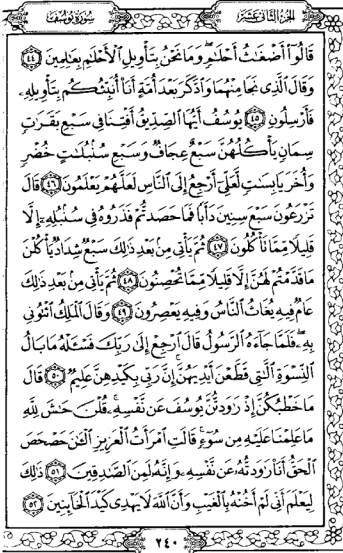 الجزء الثاني عشر
سورة يوسف
قَالُوٓا۟ أَضْغَـٰثُ أَحْلَـٰمٍ ۖ وَمَا نَحْنُ بِتَأْوِيلِ ٱلْأَحْلَـٰمِ بِعَـٰلِمِينَ ٤٤
وَقَالَ ٱلَّذِى نَجَا مِنْهُمَا وَٱدَّكَرَ بَعْدَ أُمَّةٍ أَنَا۠ أُنَبِّئُكُم بِتَأْوِيلِهِۦ
فَأَرْسِلُونِ ٤٥ يُوسُفُ أَيُّهَا ٱلصِّدِّيقُ أَفْتِنَا فِى سَبْعِ بَقَرَٰتٍ
سِمَانٍ يَأْكُلُهُنَّ سَبْعٌ عِجَافٌ وَسَبْعِ سُنۢبُلَـٰتٍ خُضْرٍ
وَأُخَرَ يَابِسَـٰتٍ لَّعَلِّىٓ أَرْجِعُ إِلَى ٱلنَّاسِ لَعَلَّهُمْ يَعْلَمُونَ ٤٦ قَالَ
تَزْرَعُونَ سَبْعَ سِنِينَ دَأَبًا فَمَا حَصَدتُّمْ فَذَرُوهُ فِى سُنۢبُلِهِۦٓ إِلَّا
قَلِيلًا مِّمَّا تَأْكُلُونَ ٤٧ ثُمَّ يَأْتِى مِنۢ بَعْدِ ذَٰلِكَ سَبْعٌ شِدَادٌ يَأْكُلْنَ
مَا قَدَّمْتُمْ لَهُنَّ إِلَّا قَلِيلًا مِّمَّا تُحْصِنُونَ ٤٨ ثُمَّ يَأْتِى مِنۢ بَعْدِ ذَٰلِكَ
عَامٌ فِيهِ يُغَاثُ ٱلنَّاسُ وَفِيهِ يَعْصِرُونَ ٤٩ وَقَالَ ٱلْمَلِكُ ٱئْتُونِى
بِهِۦ ۖ فَلَمَّا جَآءَهُ ٱلرَّسُولُ قَالَ ٱرْجِعْ إِلَىٰ رَبِّكَ فَسْـَٔلْهُ مَا بَالُ
ٱلنِّسْوَةِ ٱلَّـٰتِى قَطَّعْنَ أَيْدِيَهُنَّ ۚ إِنَّ رَبِّى بِكَيْدِهِنَّ عَلِيمٌ ٥٠ قَالَ
مَا خَطْبُكُنَّ إِذْ رَٰوَدتُّنَّ يُوسُفَ عَن نَّفْسِهِۦ ۚ قُلْنَ حَـٰشَ لِلَّهِ
مَا عَلِمْنَا عَلَيْهِ مِن سُوٓءٍ ۚ قَالَتِ ٱمْرَأَتُ ٱلْعَزِيزِ ٱلْـَٔـٰنَ حَصْحَصَ
ٱلْحَقُّ أَنَا۠ رَٰوَدتُّهُۥ عَن نَّفْسِهِۦ وَإِنَّهُۥ لَمِنَ ٱلصَّـٰدِقِينَ ٥١ ذَٰلِكَ
لِيَعْلَمَ أَنِّى لَمْ أَخُنْهُ بِٱلْغَيْبِ وَأَنَّ ٱللَّهَ لَا يَهْدِى كَيْدَ ٱلْخَآئِنِينَ ٥٢
٢٤٠